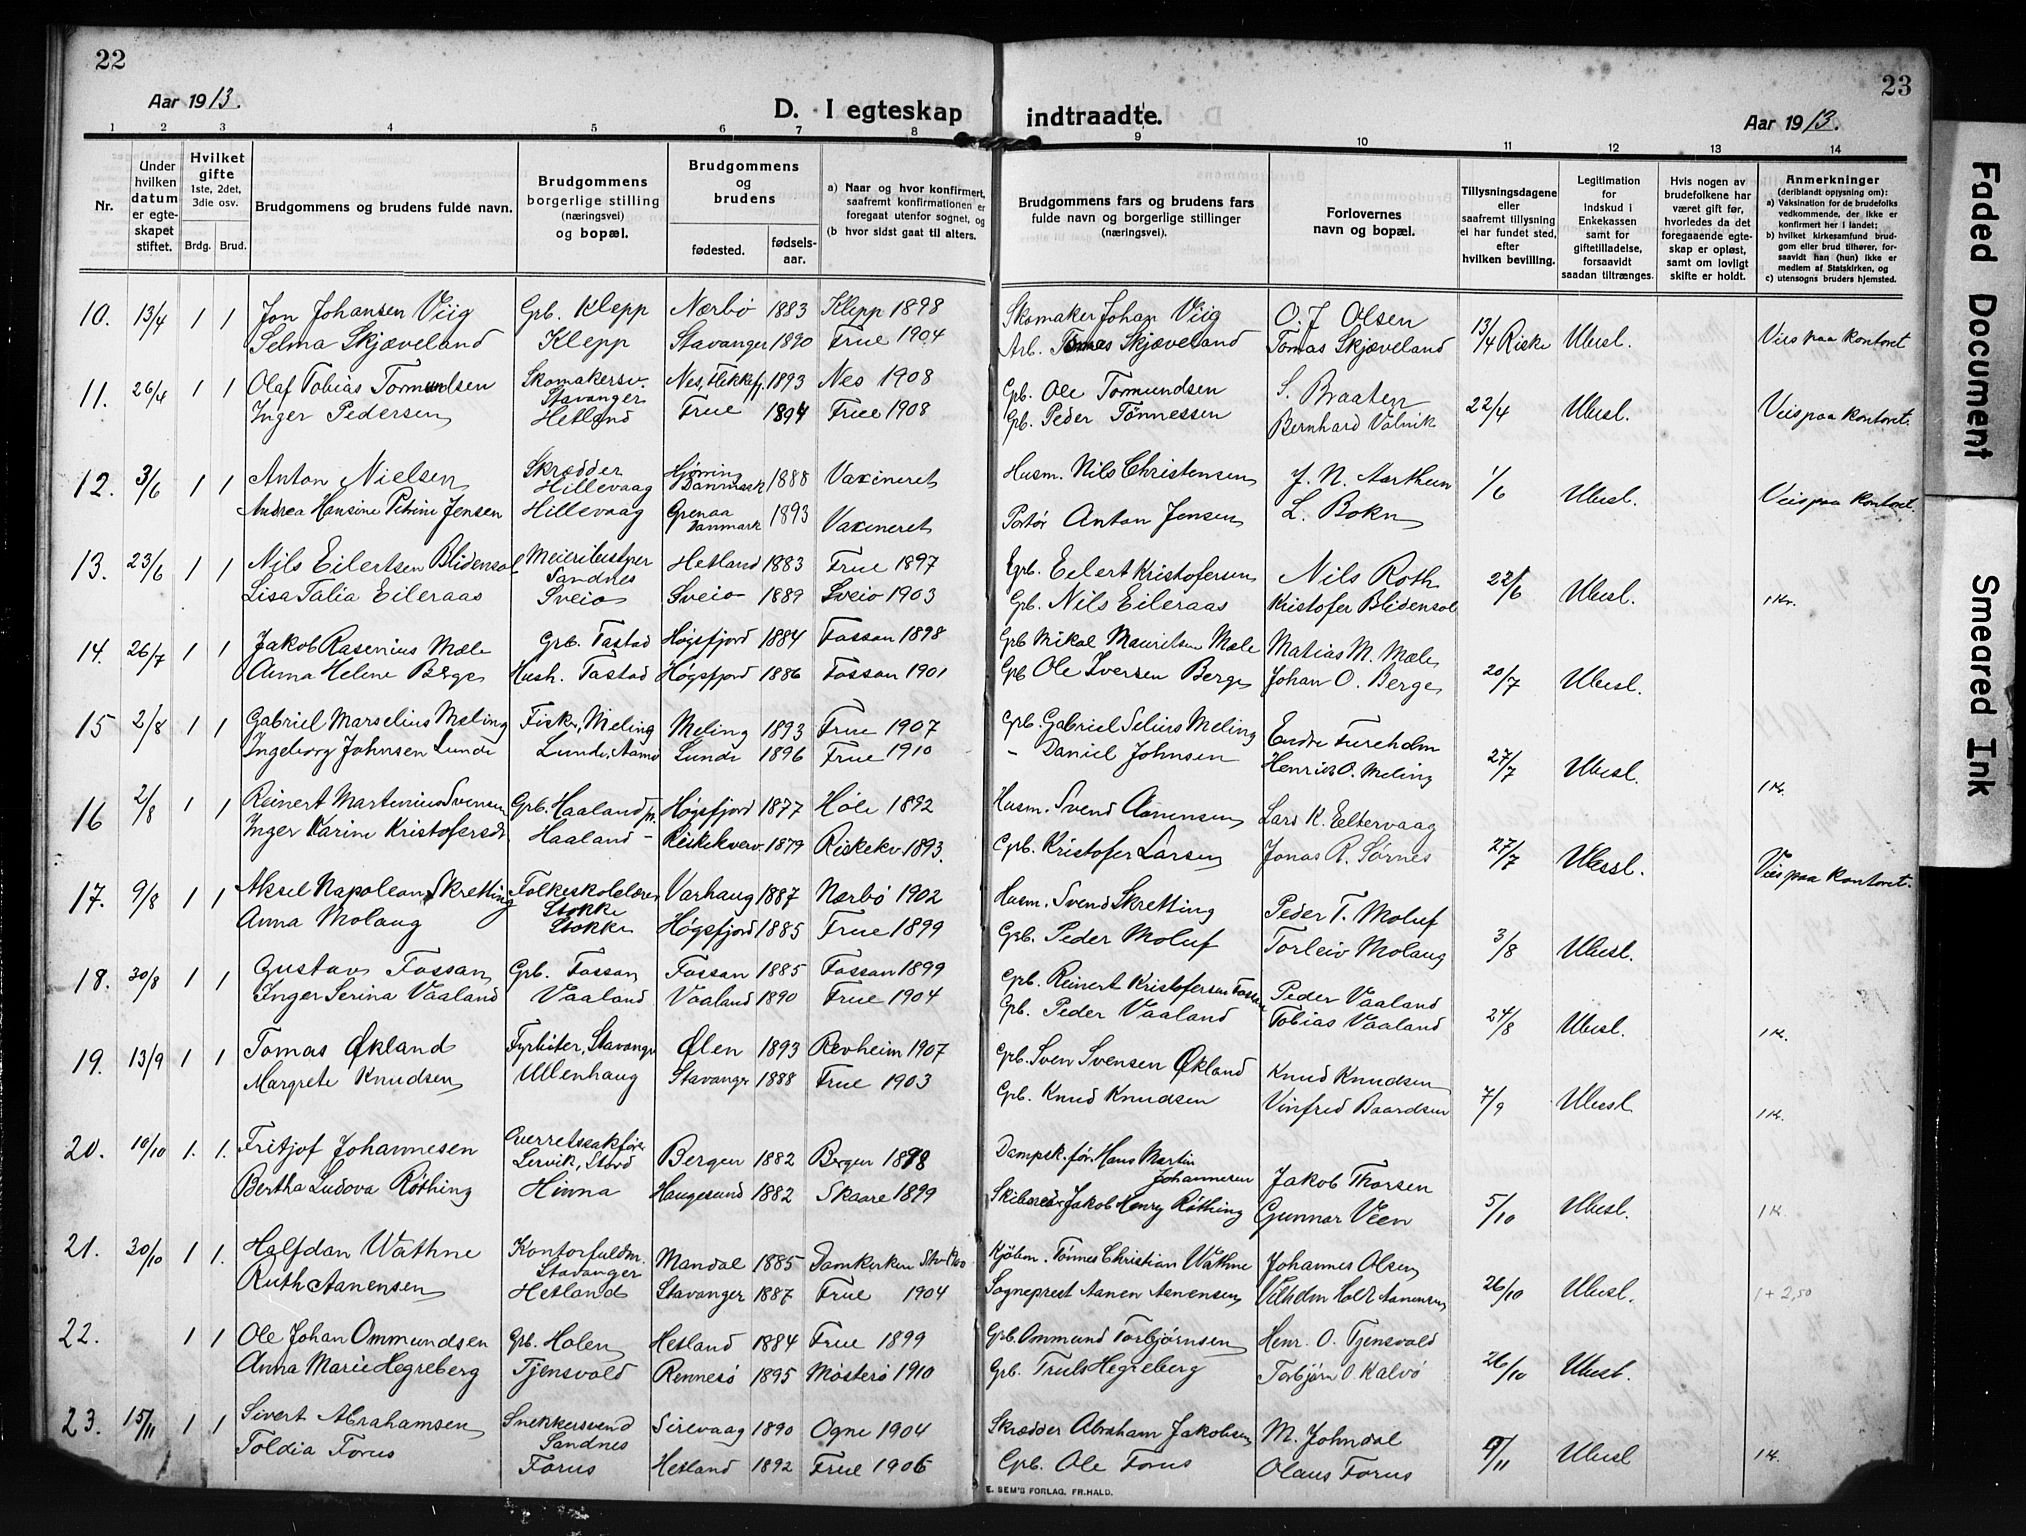 22
23
Aar 1913.
D. I egteskap indtraadte.
Aar 1913.
1 2 3 4 5 6 7 8 9 10 11 12 13 14
Nr.
Under hvilken datum er egteskapet stiftet.
Hvilket gifte 1ste, 2det, 3die osv.
Brdg. Brud.
Brudgommens og brudens fulde navn.
Brudgommens borgerlige stilling (næringsvei) og bopæl.
Brudgommens og brudens
fødested.
fødselsaar.
a) Naar og hvor konfirmert, saafremt konfirmationen er foregaat utenfor sognet, og
(b hvor sidst gaat til alters.
Brudgommens fars og brudens fars fulde navn og borgerlige stillinger (næringsvei).
Forlovernes navn og bopæl.
Tillysningsdagene eller saafremt tillysning ei har fundet sted, efter hvilken bevilling.
Legitimation for Indskud i Enkekassen samt for giftetilladelse, forsaavidt saadan tiltrænges.
Hvis nogen av brudefolkene har været gift før, hvorledes da det foregaaende egteskap er opløst, samt om lovligt skifte er holdt.
Anmerkninger (deriblandt opiysning om):
a) Vaksination for de brudefolks vedkommende, der ikke er konfirmert her i landet;
b) hvilket kirkesamfund brudgom eller brud tilhører, forsaavidt han (hun) ikke er medlem af Statskirken, og
c) utensogns bruders hjemsted.
10. 13/4 1 1 Jon Johansen Viig Grb. Klepp Nærbø 1883 Klepp 1898 Skomaker Johan Viig O. J. Olsen 13/4 Riske Ubesl. Vies paa kontoret
Selma Skjæveland Klepp Stavanger 1890 Frue 1904 Arb. Tomas Skjæveland Tomas Skjæveland
11. 26/4 1 1 Olaf Tobias Tormundsen Skomakersv. Stavanger Nes, Flekkefj. 1893 Nes 1908 Grb. Ole Tormundsen S. Braaten 22/4 Ubesl. Vies paa kontoret.
Inger Pedersen Hetland Frue 1894 Frue 1908 Grb. Peder Tønnessen Bernhard Valvik
12. 3/6 1 1 Anton Nielsen Skrædder Hillevaag Hjørring Danmark 1888 Vaxineret Husm. Nils Christensen J. N. Aarthun 1/6 Ubesl. Vies paa kontoret.
Andrea Hansine Petrine Jensen Hillevaag Grenaa Danmark 1893 Vaxineret Portør Anton Jensen L. Bokn
13. 23/6 1 1 Nils Eilertsen Blidensol Meieribestyrer Sandnes Hetland 1883 Frue 1897 Grb. Eilert Kristofersen Nils Roth 22/6 Ubesl. 1 Kr.
Lisa Talia Eileraas Sveio Sveio 1889 Sveio 1903 Grb. Nils Eileraas Kristofer Blidensol
14. 26/7 1 1 Jakob Rasenius Mæle Grb. Tastad Høgsfjord 1884 Fossan 1898 Grb Mikal Mauritsen Mæle Matias M. Mæle 20/7 Ubesl.
Anna Helene Berge Hush. Tastad Høgsfjord 1886 Fossan 1901 Grb Ole Iversen Berge Johan O. Berge
15 2/8 1 1 Gabriel Marselius Meling Fisker, Meling Meling 1893 Frue 1907 Grb. Gabriel Selius Meling Endre Fureholm 27/7 Ubesl. 1 Kr.
Ingeborg Johnsen Lunde Lunde, Aamø Lunde 1896 Frue 1910 - Daniel Johnsen Henrik O. Meling
16 2/8 1 1 Reinert Martinius Svensen Grb. Haaland Høgsfjord 1877 Høle 1892 Husm. Svend Aanensen Lars K. Eeltervaag 27/7 Ubesl. Vies paa kontoret.
Inger Karine Kristofersdr. Haaland - Riskekverv. 1879 Riskekv. 1893. Grb. Kristofer Larsen Jonas R. Sørnes
17. 9/8 1 1 Aksel Napoleon Skretting Folkeskolelærer Stokke Varhaug 1887 Nærbø 1902 Husm. Svend Skretting Peder T. Moluf 3/8 Ubesl.
Anna Molaug Stokke Høgsfjord 1885 Frue 1899 Grb. Peder Moluf Torleiv Molaug
18. 30/8 1 1 Gustav Fossan Grb. Fossan Fossan 1885 Fossan 1899 Grb. Reinert Kristofersen Fossan Peder Vaaland 24/8 Ubesl. 1 K.
Inger Serina Vaaland Vaaland Vaaland 1890 Frue 1904 Grb. Peder Vaaland Tobias Vaaland
19. 13/9 1 1 Tomas Økland Fyrbøter, Stavanger Ølen 1893 Revheim 1907 Grb. Sven Svensen Økland Knud Knudsen 7/9 Ubesl. 1 K.
Margrete Knudsen Ullenhaug Stavanger 1888 Frue 1903 Grb. Knud Knudsen Vinfred Baardsen
20. 10/10 1. 1. Fritjof Johannesen Overretssakfører Lervik, Stord Bergen 1882 Bergen 1898 Dampsk.før. Hans Martin Johannesen Jakob Thorsen 5/10 Ubesl. 1 K.
Bertha Ludova Røthing Hinna Haugesund 1882 Skaare 1899 Skibsreder Jakob Henry Røthing Gunnar Veen
21. 30/10 1 1. Halfdan Wathne Kontorfuldm. Stavanger Mandal 1885 Domkirken Kjøbm. Tønnes Christian Wathne Johannes Olsen 26/10 Ubesl. 1 + 2,50
Ruth Aanensen Hetland Stavanger 1887 Frue 1904 Sogneprest Aanen Aanensen Vilhelm Holt Aanensen
22. 1 1 Ole Johan Ommundsen Grb. Holen Hetland 1884 Frue 1899 Grb. Ommund Torbjørnsen Henr. O. Tjensvold 26/10 Ubesl.
Anna Marie Hegreberg Tjensvold Rennesø 1895 Mosterø 1910 Grb. Truls Hegreberg Torbjørn O. Kalvø
23. 15/11 1 1 Sivert Abrahamsen Snekkersvend Sandnes Sirevaag 1890 Ogne 1904 Skrædder Abraham Jakobsen M. Johndal 9/11 Ubesl 1 K.
Toldia Forus Forus Hetland 1892 Frue 1906 Grb. Ole Forus Olaus Forus
E. SEM'S FORLAG. FR.HALD.
Faded Document
Smeared Ink